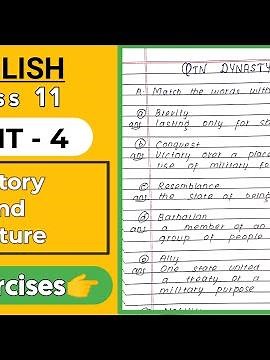 LISH
ss 11
IT - 4
tory
nd
ture
ercises
QIN DYNASTY
A. Match the words with
a Brevity
ans lasting only for sh
b Conquest
ans Victory over a place
use of military fo
c Resemblance
ans the state of bein
d Barbarian
ans a member of an
group of people
e Ally
ans One state united
a treaty or a
military purpose